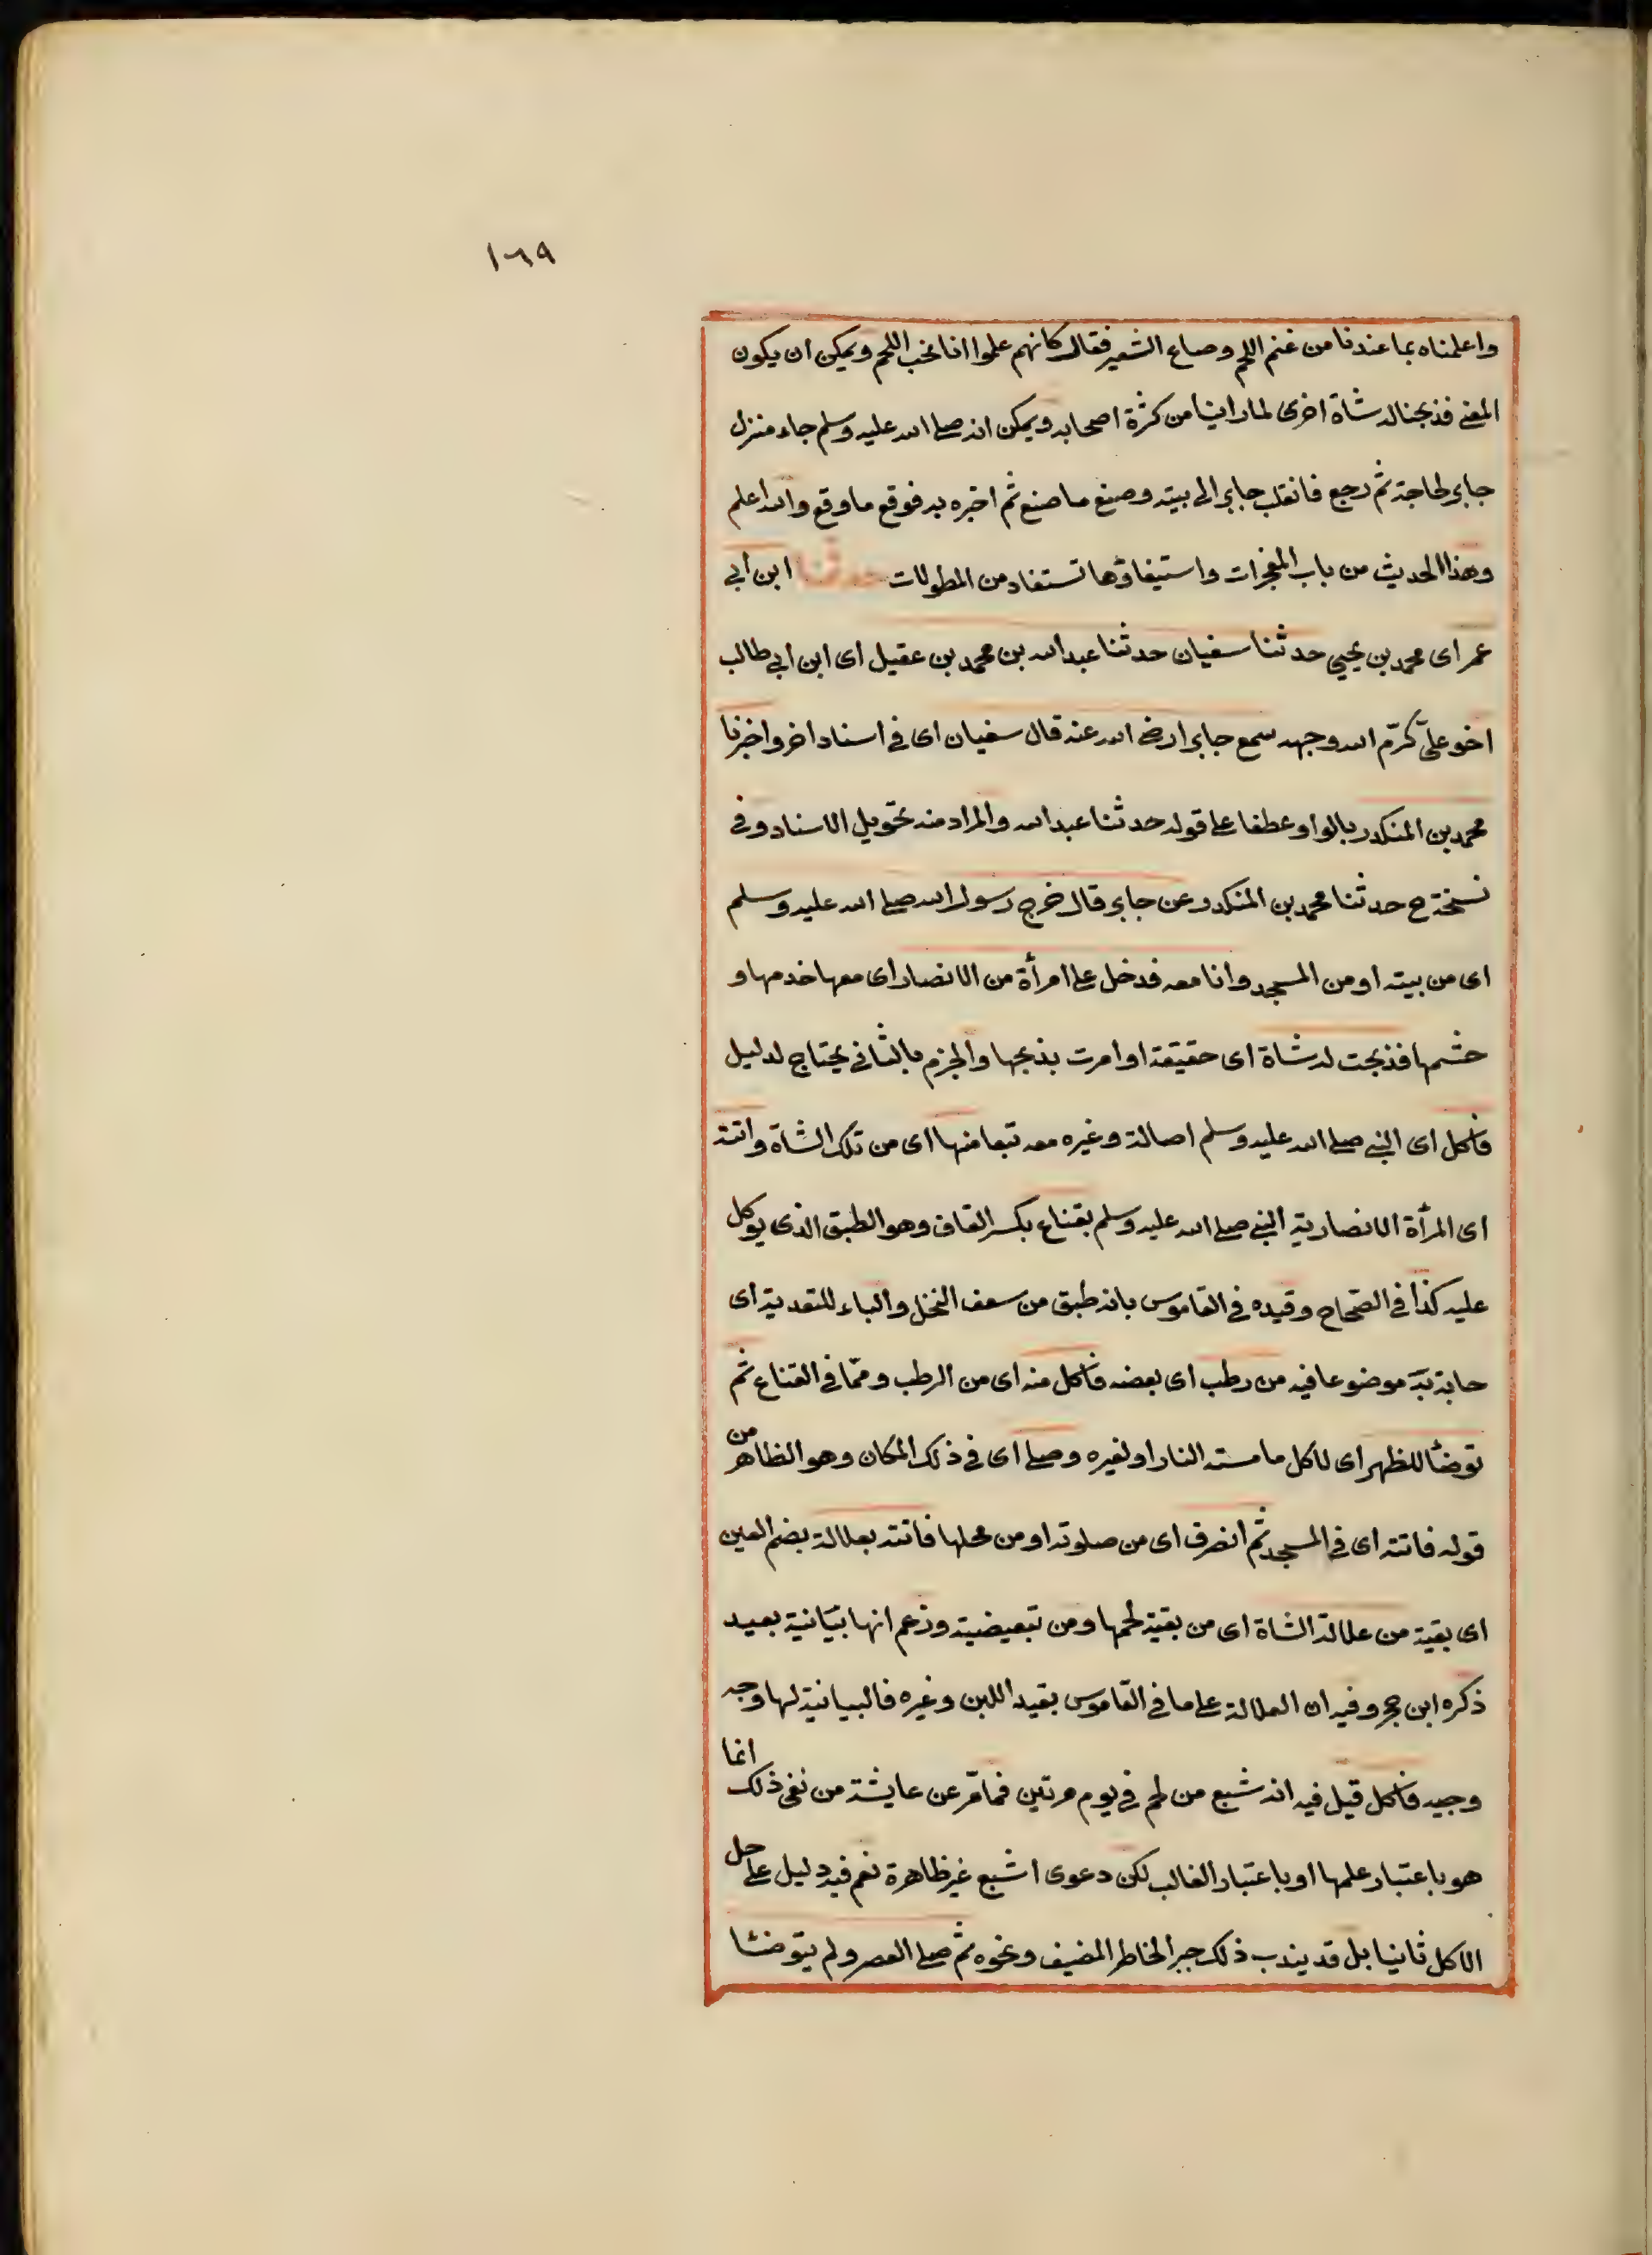 ١٦٩
واعلمناه بما عندنا من غنم اللحم وصاع الشعير فقال كانهم علموا انا نحب اللحم ويمكن ان يكون
المعنى فذبحنا له شاة اخرى لما راينا من كثرة اصحابه ويمكن انه صلى الله عليه وسلم جاء منزل
جابر لحاجة ثم رجع فانقلب جابر الى بيته وصنع ما صنع ثم اخبره به فوقع ما وقع والله اعلم
وهذا الحديث من باب المعجزات واستيفاؤها تستفاد من المطولات حدثنا ابن ابى
عمر اى محمد بن يحيى حدثنا سفيان حدثنا عبد الله بن محمد بن عقيل اى ابن ابى طالب
اخو علىّ كرّم الله وجهه سمع جابرا رضى الله عنه قال سفيان اى فى اسناد اخر واخبرنا
محمد بن المنكدر بالواو عطفا على قوله حدثنا عبد الله والمراد منه تحويل الاسناد وفى
نسخة ح حدثنا محمد بن المنكدر عن جابر قال خرج رسول الله صلى الله عليه وسلم
اى من بيته او من المسجد وانا معه فدخل على امرأة من الانصار اى معها خدمها و
حشمها فذبحت له شاة اى حقيقة او امرت بذبحها والجزم بالثانى يحتاج لدليل
فاكل اى النبى صلى الله عليه وسلم اصالة وغيره معه تبعا منها اى من تلك الشاة واتته
اى المرأة الانصارية النبى صلى الله عليه وسلم بقناع بكسر القاف وهو الطبق الذى يوكل
عليه كذا فى الصّحاح وقيده فى القاموس بانه طبق من سعف النخل والباء للتعدية اى
موضوعا فيه من رطب اى بعضه فاكل منه اى من الرطب وممّا فى القناع ثم
توضأ للظهر اى لاكل ما مسته النار او لغيره وصلى اى فى ذلك المكان وهو الظاهر من
قوله فاتته اى فى المسجد ثم انصرف اى من صلوته او من محلها فاتته بعلالة بضم العين
اى بقية من علالة الشاة اى من بقية لحمها ومن تبعيضية وزعم انها بيانية بعيد
ذكره ابن حجر وفيه ان العلالة على ما فى القاموس بقية اللبن وغيره فالبيانية لها وجه
وجيه فاكل قيل فيه انه شبع من لحم فى يوم مرتين فما مرّ عن عايشة من نفى ذلك انما
هو باعتبار علمها او باعتبار الغالب لكن دعوى اشبع غير ظاهرة نعم فيه دليل على حل
الاكل ثانيا بل قد يندب ذلك جبر الخاطر المضيف ونحوه ثم صلى العصر ولم يتوضأ